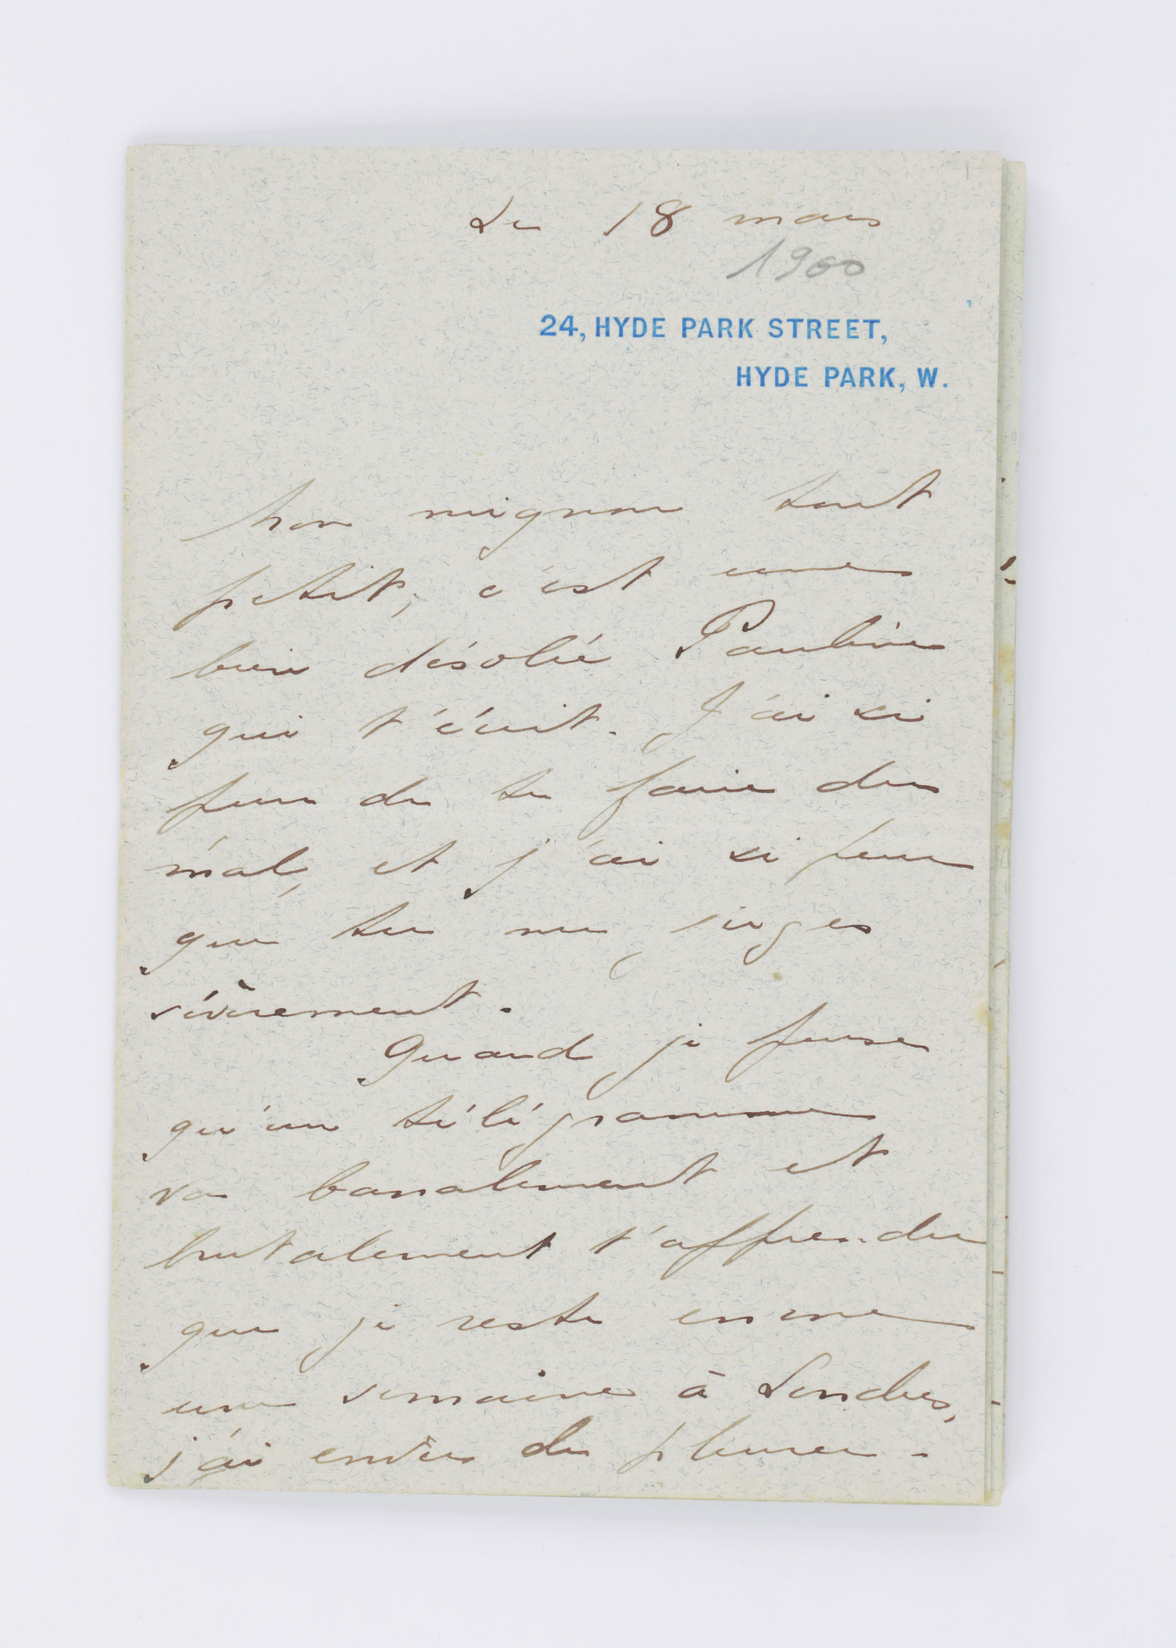 Le 18 mars
1900
24, HYDE PARK STREET,
HYDE PARK, W.
Mon mignon tout
petit, c'est une
bien désolée Pauline
qui t'écrit. J'ai si
peur de te faire du
mal, et j'ai si peur
que tu me juges
sévèrement.
Quand je pense
qu'un télégramme
va banalement et
brutalement t'apprendre
que je reste encore
une semaine à Londres,
j'ai envie de pleurer -